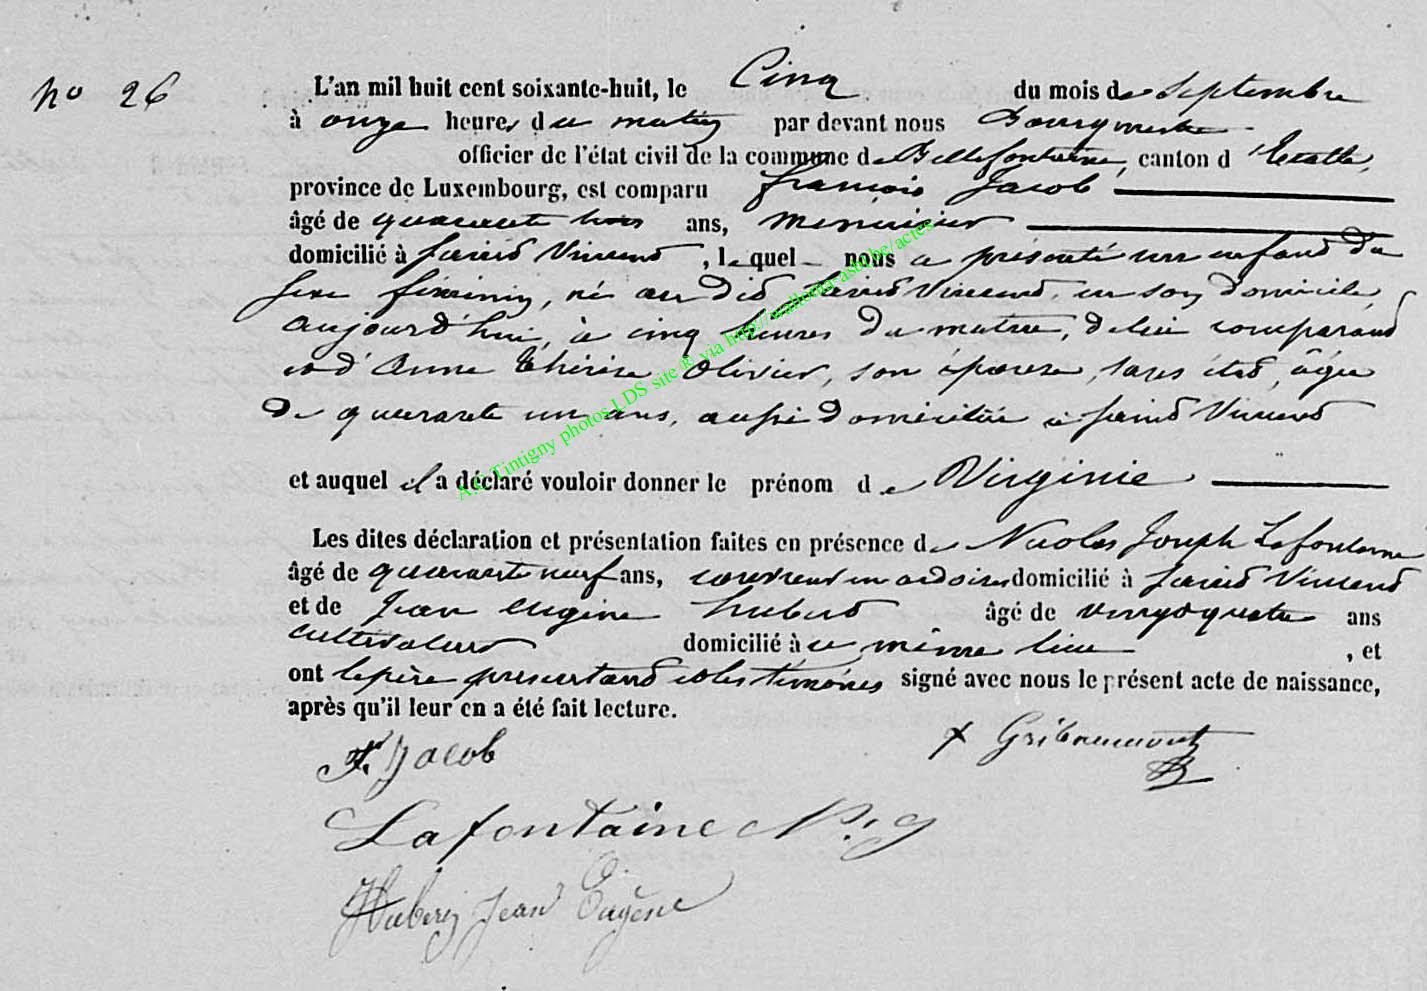 N° 26
L'an mil huit cent soixante-huit, le Cinq du mois de Septembre
à onze heures du matin par devant nous Bourgmestre
officier de l'état civil de la commune de Bellefontaine, canton d'Etalle,
province de Luxembourg, est comparu françois Jacob
âgé de quarante trois ans, menuisier
domicilié à Saint Vincent, lequel nous a présenté un enfant du
sexe féminin, né au dit Saint Vincent, en son domicile,
aujourd'hui, à cinq heures du matin, de lui comparant
et d'Anne Thérèse Olivier, son épouse, sans état, âgée
de quarante un ans, aussi domiciliée à Saint Vincent
et auquel il a déclaré vouloir donner le prénom de Virginie
Les dites déclaration et présentation faites en présence de Nicolas Joseph Lafontaine
âgé de quarante neuf ans, couvreur en ardoises domicilié à Saint Vincent
et de Jean Eugène Hubert âgé de vingt quatre ans
cultivateur domicilié à ce même lieu, et
ont le père présentant et les témoins signé avec nous le présent acte de naissance,
après qu'il leur en a été fait lecture.
F. Jacob
Gribaumont
Lafontaine N. J
Hubert Jean Eugène
A.C Tintigny photos LDS site ® via http://wallonia-asbl.be/actes